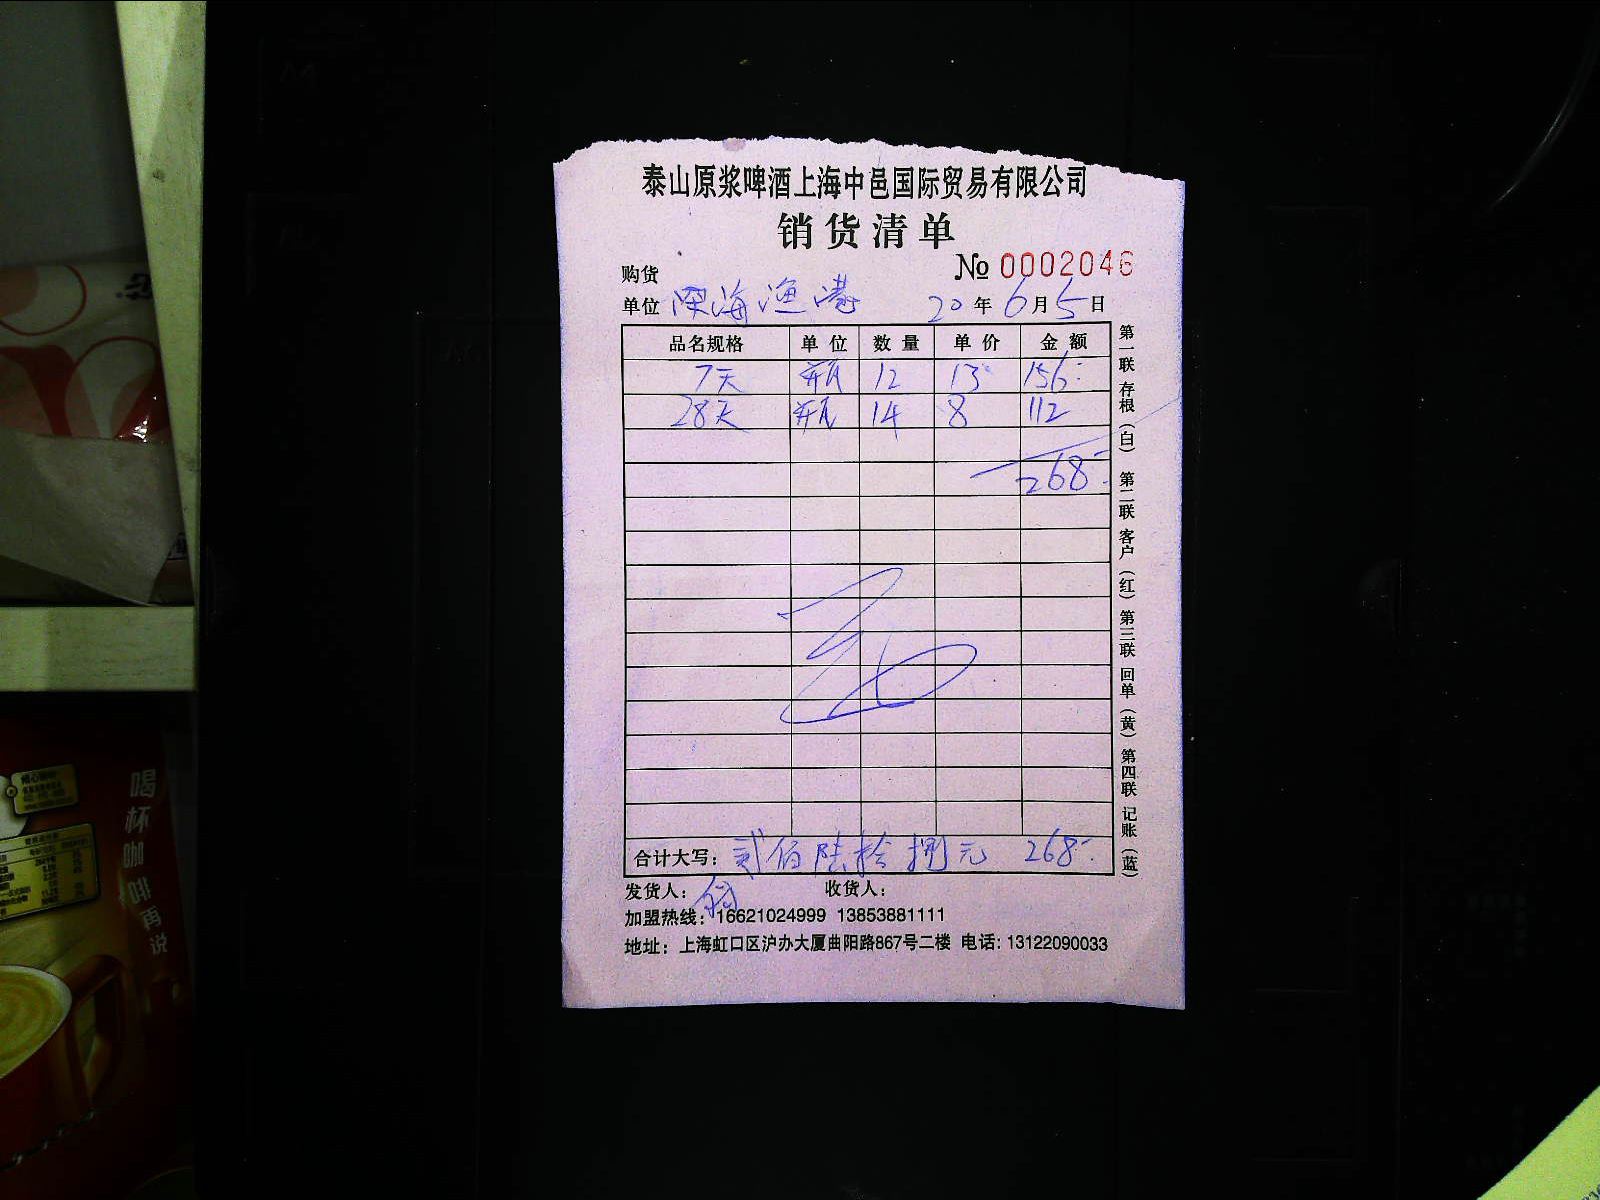 泰山原浆啤酒上海中邑国际贸易有限公司
销货清单
№ 0002046
购货
单位 深海渔港 20年6月5日
品名规格 单位 数量 单价 金额
7天 瓶 12 13 156
28天 瓶 14 8 112
268
合计大写：贰佰陆拾捌元 268
发货人： 收货人：
加盟热线：16621024999 13853881111
地址：上海虹口区沪办大厦曲阳路867号二楼 电话：13122090033
第一联 存根（白） 第二联 客户（红） 第三联 回单（黄） 第四联 记账（蓝）
喝杯咖啡再说